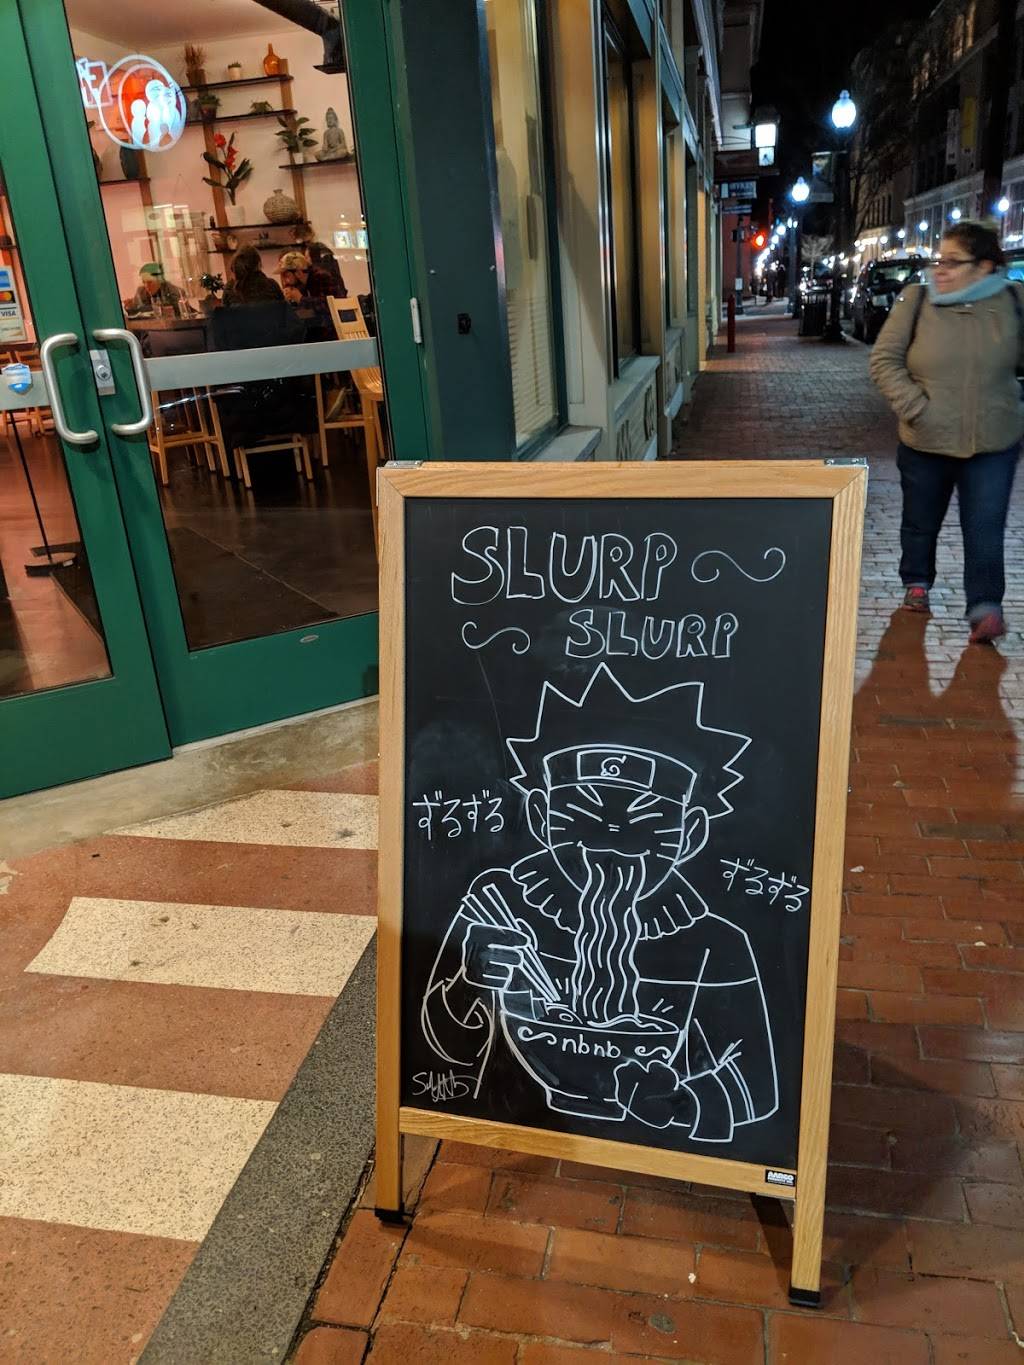 SLURP
SLURP
ずるずる
ずるずる
nbnb
VISA
AARCO